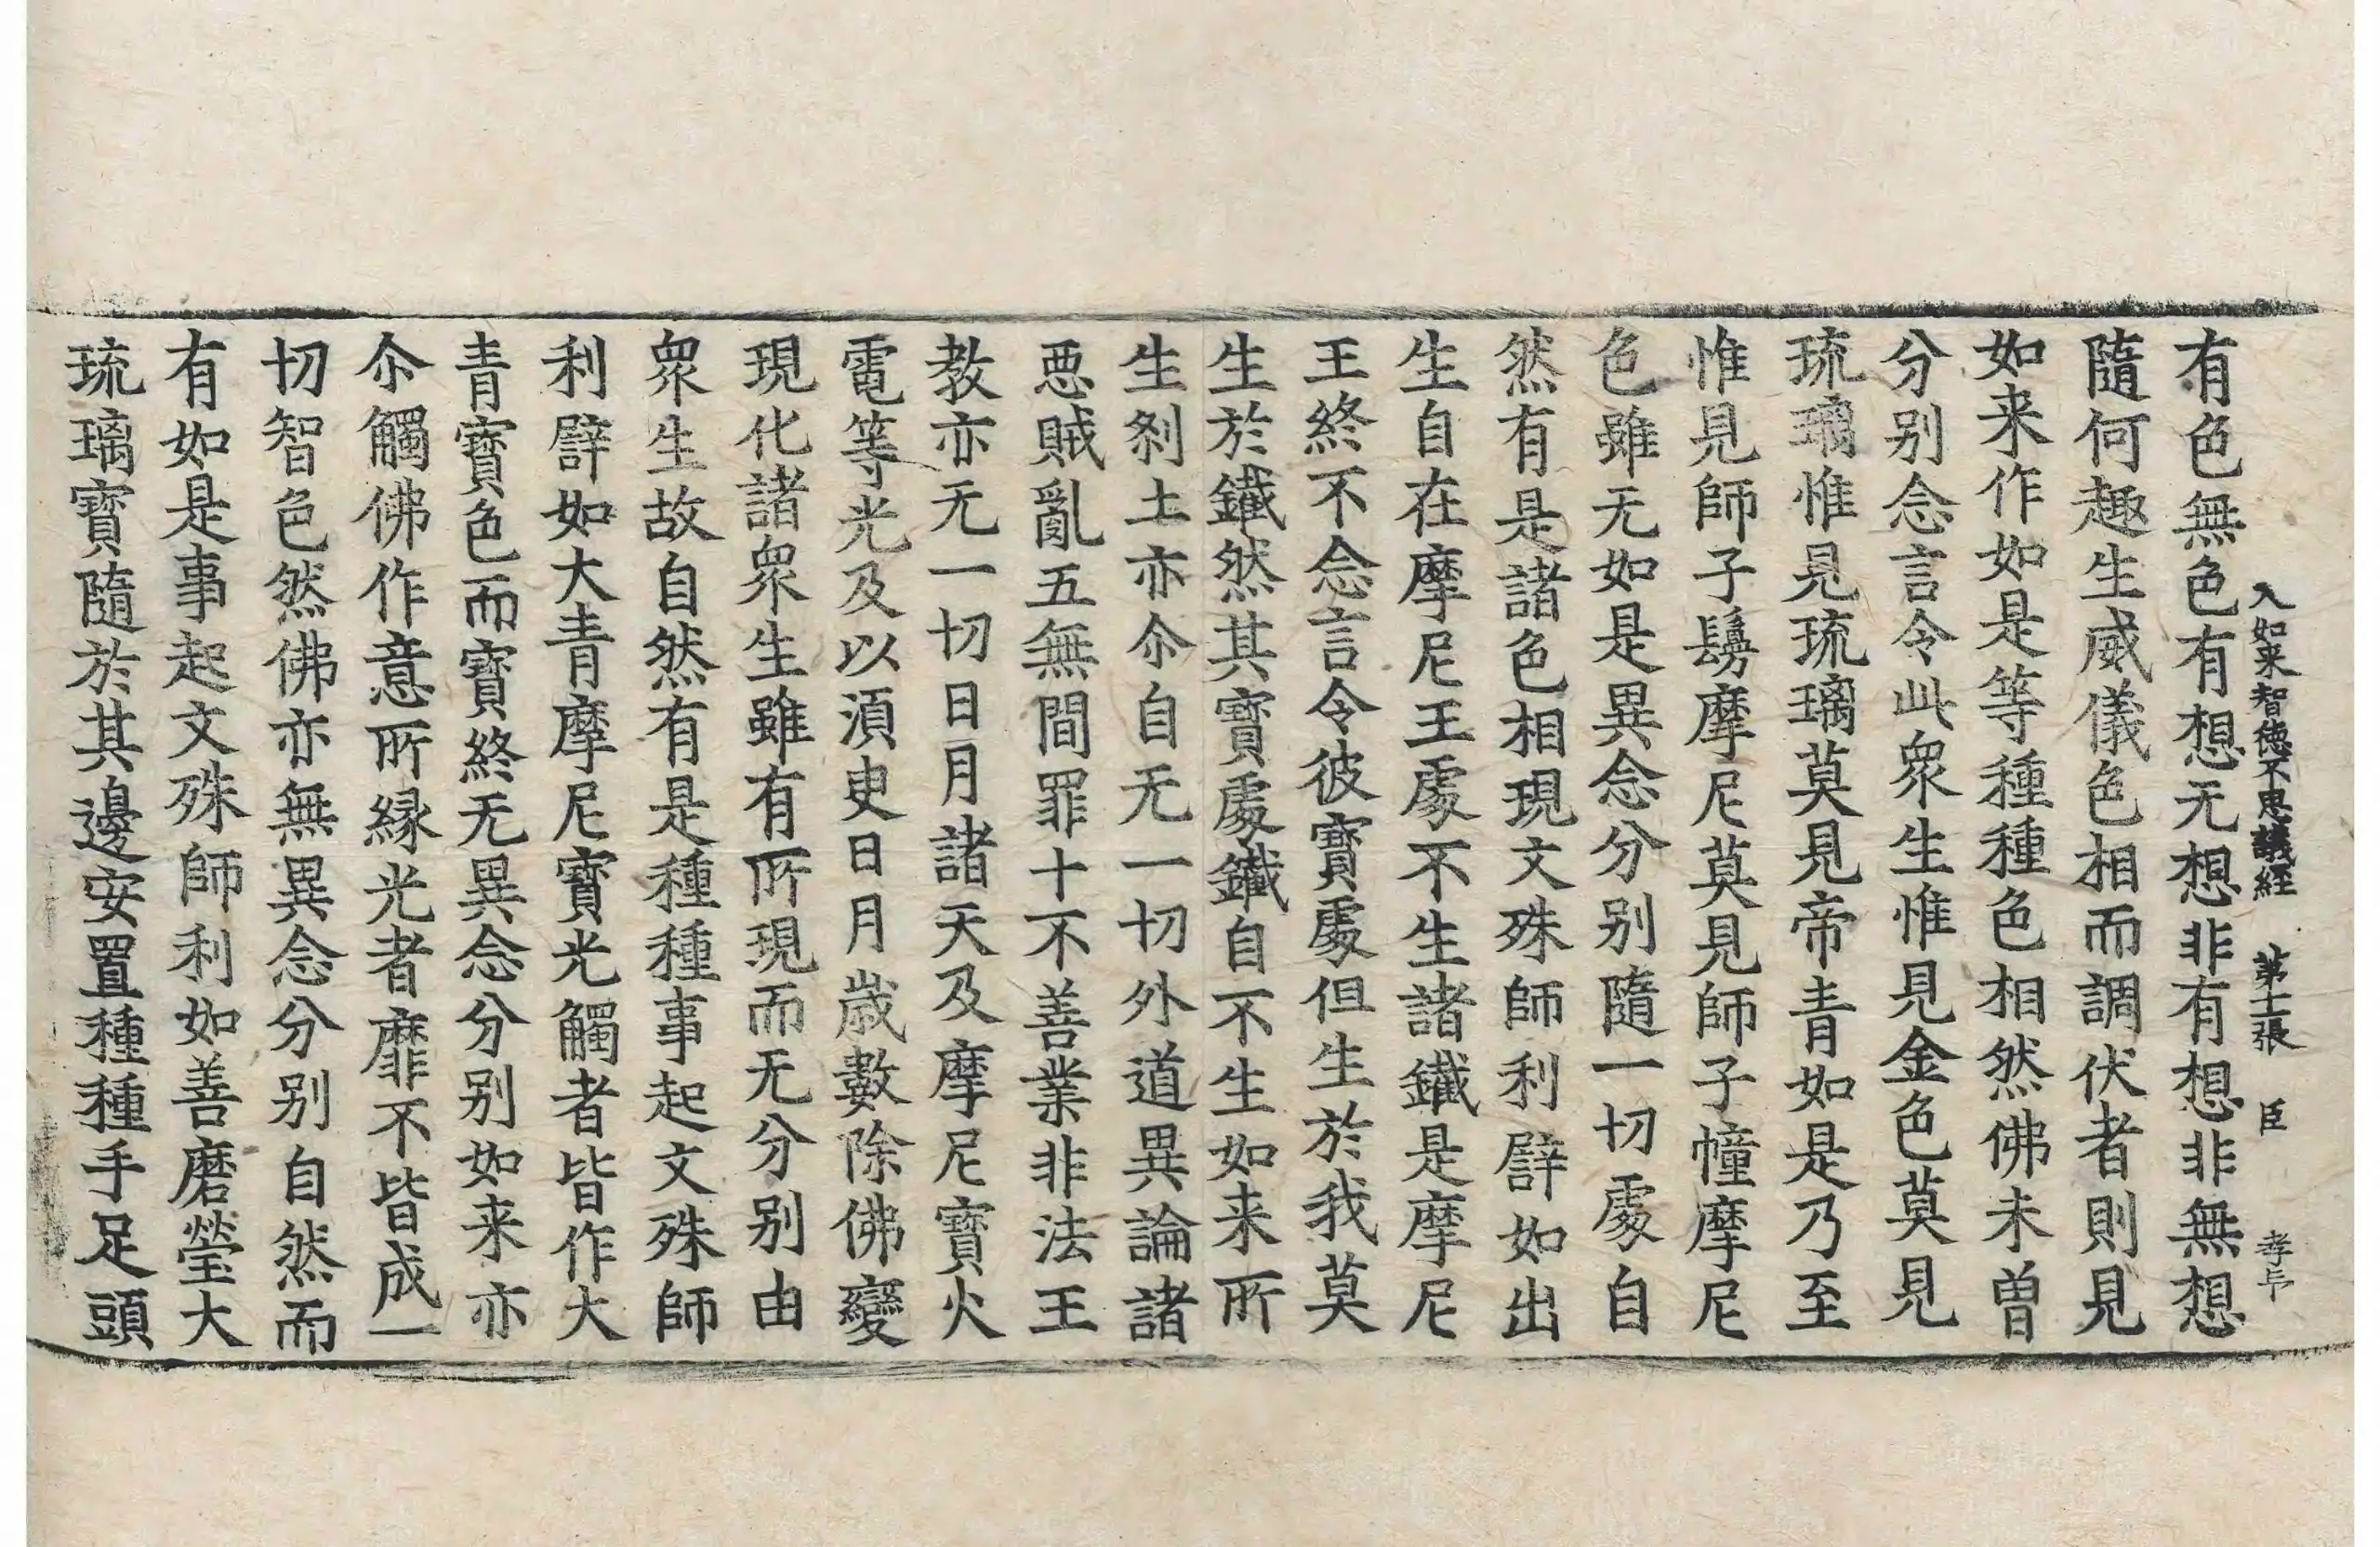 入如来智徳不思議経 第十二張 臣 孝与
有色無色有想无想非有想非無想
隨何趣生威儀色相而調伏者則見
如来作如是等種種色相然佛未曾
分别念言令此衆生惟見金色莫見
琉璃惟見琉璃莫見帝青如是乃至
惟見師子鬘摩尼莫見師子幢摩尼
色雖无如是異念分别隨一切處自
然有是諸色相現文殊師利譬如出
生自在摩尼王處不生諸鐵是摩尼
王終不念言令彼寶處但生於我莫
生於鐵然其寶處鐵自不生如来所
生刹土亦尒自无一切外道異論諸
悪賊亂五無間罪十不善業非法王
教亦无一切日月諸天及摩尼寶火
電等光及以湏㬰日月歳數除佛變
現化諸衆生雖有所現而无分别由
衆生故自然有是種種事起文殊師
利譬如大青摩尼寶光觸者皆作大
青寶色而寶終无異念分别如来亦
尒觸佛作意所緣光者靡不皆成一
切智色然佛亦無異念分别自然而
有如是事起文殊師利如善磨瑩大
琉璃寶隨於其邊安置種種手足頭